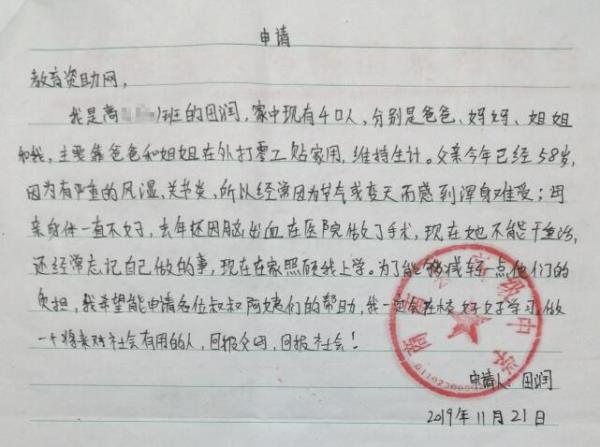 申请
教育资助网,
我是高 班的田润,家中现有4口人,分别是爸爸、妈妈、姐姐
和我,主要靠爸爸和姐姐在外打零工贴家用,维持生计。父亲今年已经58岁,
因为有严重的风湿、关节炎,所以经常因为节气或变天而感到浑身难受;母
亲身体一直不好,去年还因脑出血在医院做了手术,现在她不能干重活,
还经常忘记自己做的事,现在在家照顾我上学。为了能够减轻一点他们的
负担,我希望能申请各位叔叔阿姨们的帮助,我一定会在校好好学习,做
一个将来对社会有用的人,回报父母,回报社会!
申请人:田润
2019年11月21日
高级中学